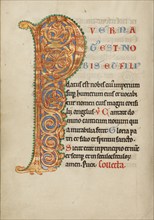 PVER NA
T' EST NO
BIS ET FILI
datus est nobis cuius imperium
sup humerum eius et uocabi
nomen eius magni consi
lii angelus. Cantate do
mino canticum nouum qui
a mirabilia fecit. Gloria pa
tri et filio et
Sicut erat in principio et
et semper et in secula
amen. Puer Collecta.